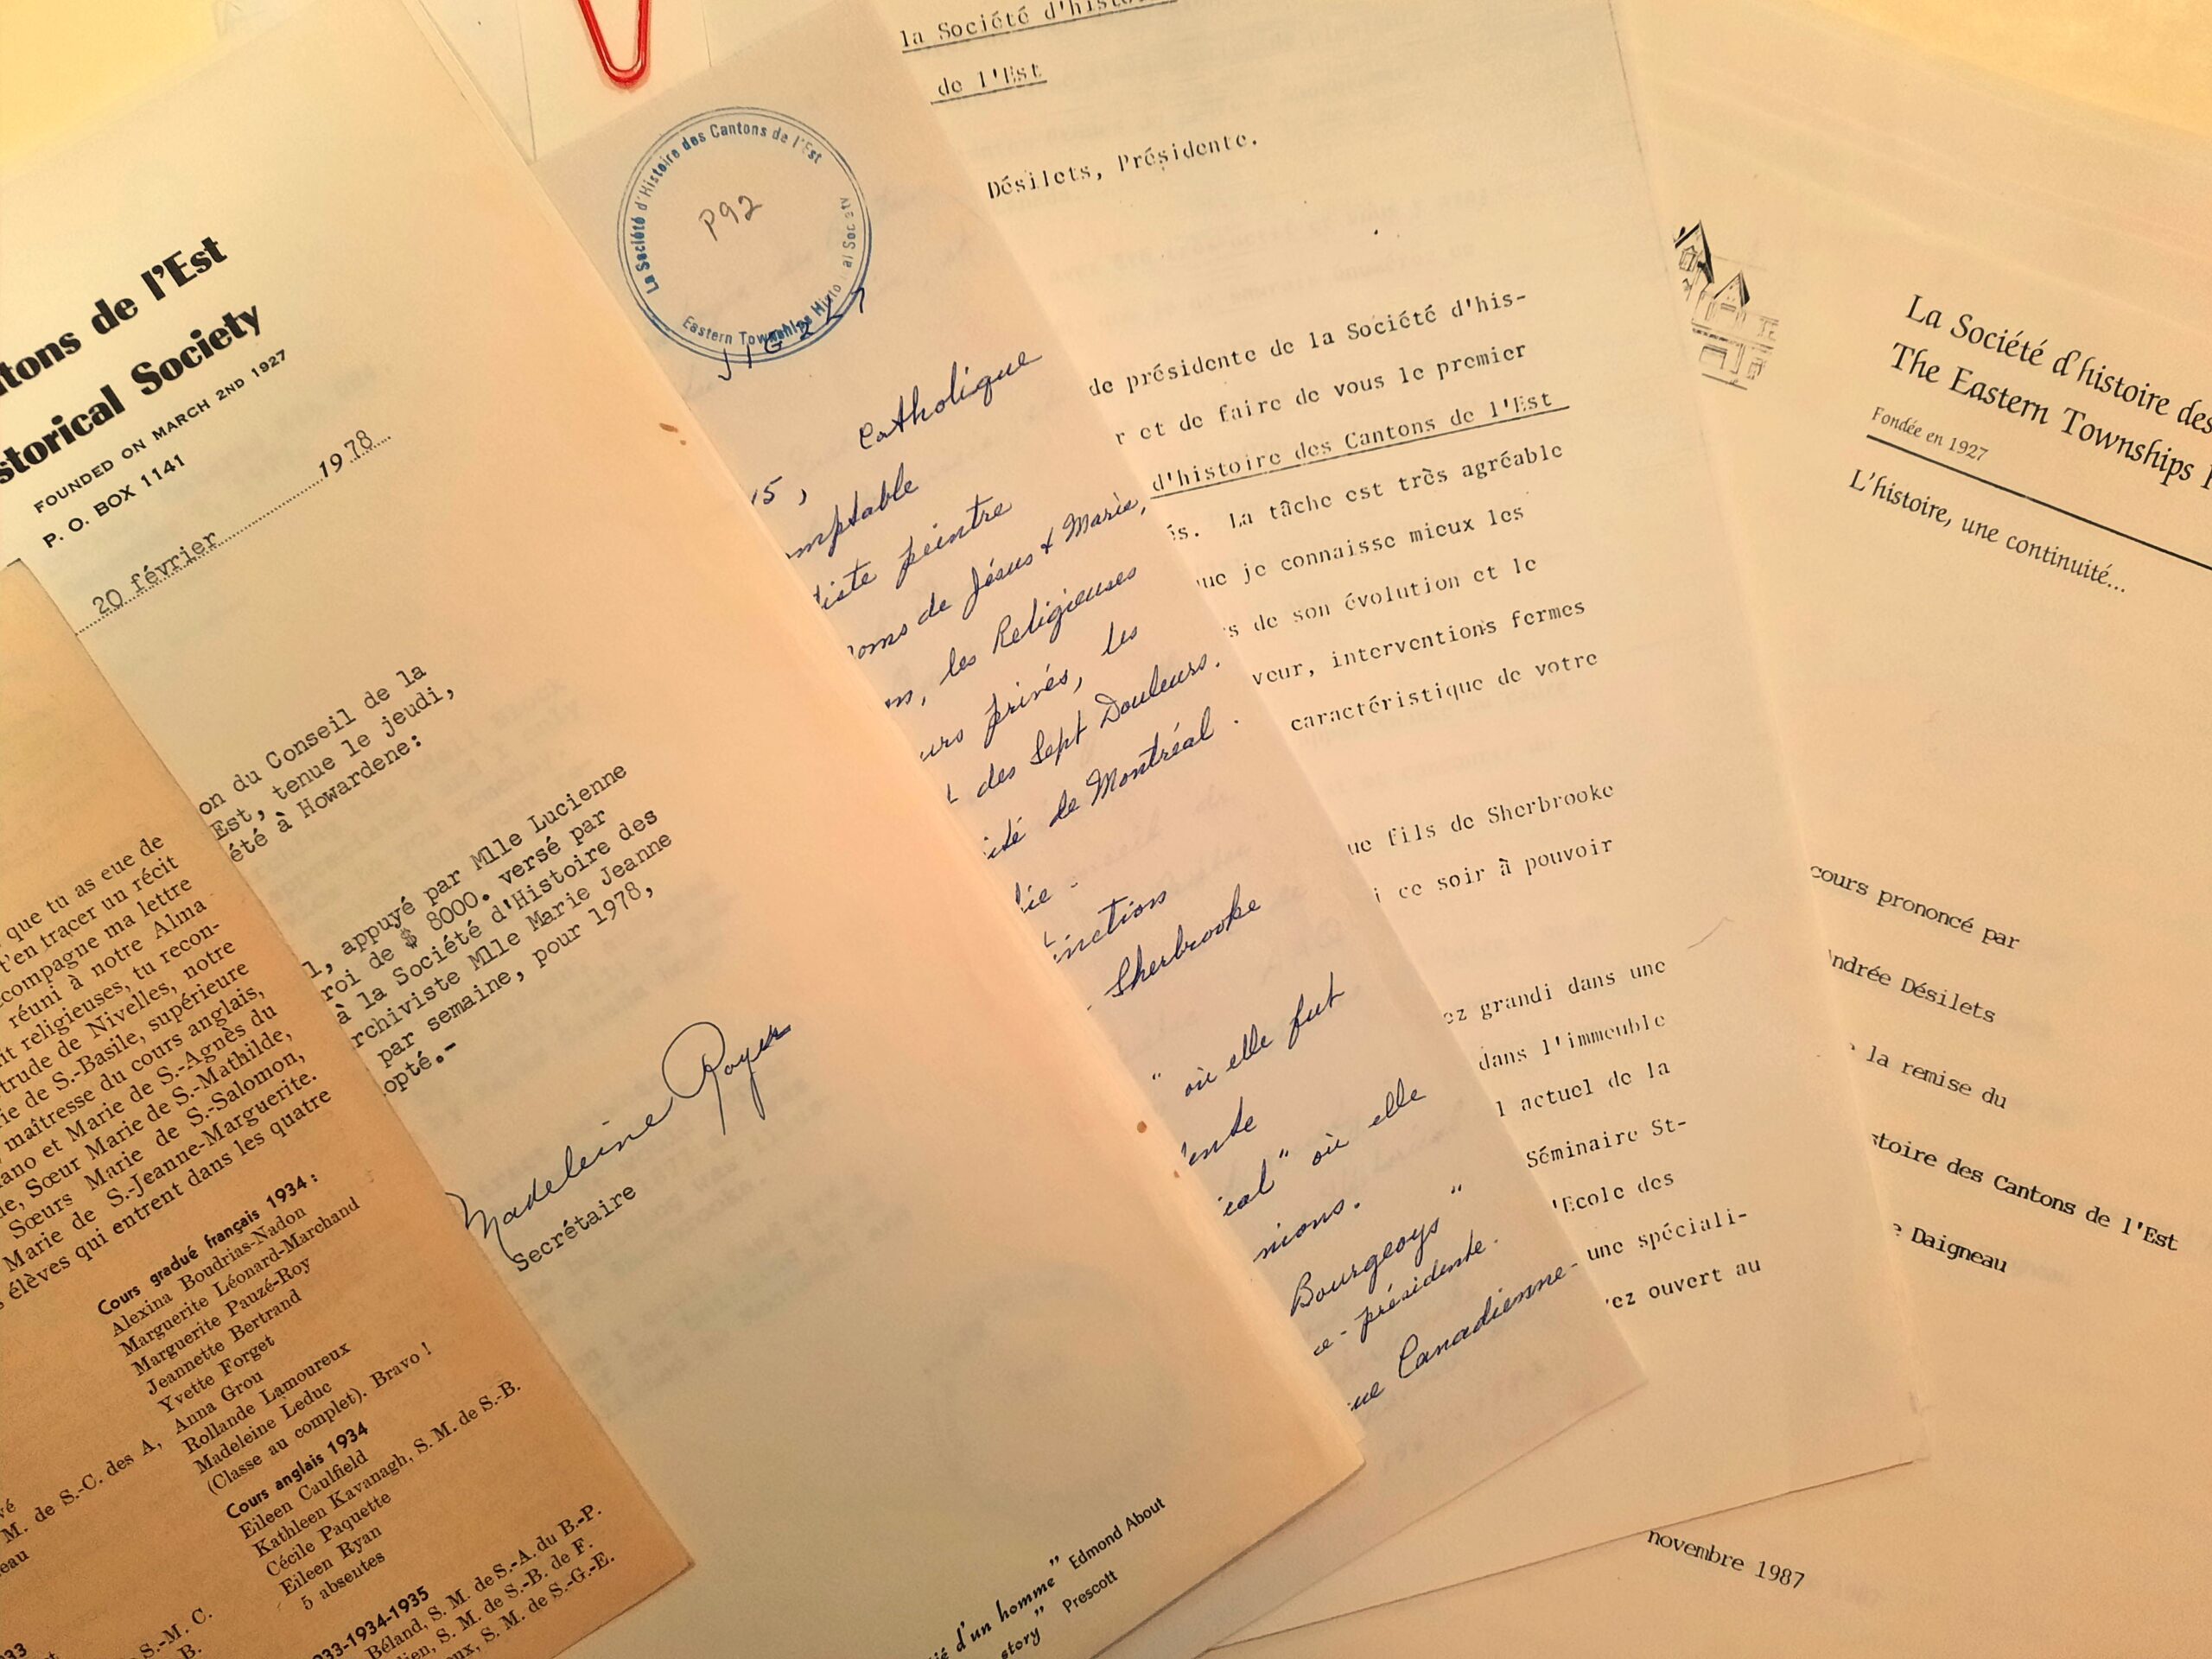 que tu as eue de
t'en tracer un récit
compagne ma lettre
réuni à notre Alma
it religieuses, tu recon-
trude de Nivelles, notre
rie de S.-Basile, supérieure
maîtresse du cours anglais,
ano et Marie de S.-Agnès du
e, Sœur Marie de S.-Mathilde,
Sœurs Marie de S.-Salomon,
Marie de S.-Jeanne-Marguerite.
élèves qui entrent dans les quatre
Cours gradué français 1934 :
Alexina Boudrias-Nadon
Marguerite Léonard-Marchand
Marguerite Pauzé-Roy
Jeannette Bertrand
Yvette Forget
Anna Grou
Rollande Lamoureux
Madeleine Leduc
(Classe au complet). Bravo !
Cours anglais 1934
Eileen Caulfield
Kathleen Kavanagh, S. M. de S.-B.
Cécile Paquette
Eileen Ryan
5 absentes
933-1934-1935
Béland, S. M. de S.-A. du B.-P.
lien, S. M. de S.-B. de F.
oux, S. M. de S.-G.-E.
M. de S.-C. des A,
eau
S.-M. C.
B.
ntons de l'Est
storical Society
FOUNDED ON MARCH 2ND 1927
P. O. BOX 1141
20 février 1978
on du Conseil de la
Est, tenue le jeudi,
été à Howardene:
l, appuyé par Mlle Lucienne
roi de $ 8000. versé par
à la Société d'Histoire des
rchiviste Mlle Marie Jeanne
par semaine, pour 1978,
opté.-
Madeleine Royer
Secrétaire
d'un homme " Edmond About
story " Prescott
La Société d'Histoire des Cantons de l'Est
Eastern Townships Histo al Society
P92
Catholique
15,
mptable
tiste peintre
oms de Jésus & Marie,
en, les Religieuses
urs privés, les
t des Sept Douleurs.
ité de Montréal.
lie -
inction
- Sherbrooke
" où elle fut
ente
ical " où elle
nions.
Bourgeoys "
ce-présidente.
ue Canadienne-
la Société d'histoi
de l'Est
Désilets, Présidente.
de présidente de la Société d'his-
r et de faire de vous le premier
d'histoire des Cantons de l'Est
és. La tâche est très agréable
ue je connaisse mieux les
s de son évolution et le
veur, interventions fermes
caractéristique de votre
ue fils de Sherbrooke
i ce soir à pouvoir
ez grandi dans une
dans l'immeuble
l actuel de la
Séminaire St-
'Ecole des
une spéciali-
ez ouvert au
La Société d'histoire des
The Eastern Townships H
Fondée en 1927
L'histoire, une continuité...
cours prononcé par
ndrée Désilets
la remise du
stoire des Cantons de l'Est
e Daigneau
novembre 1987